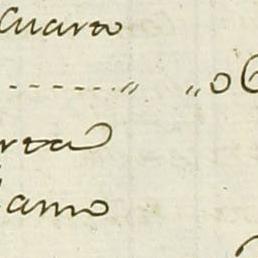 cuarto
-------" "06
rta
amo